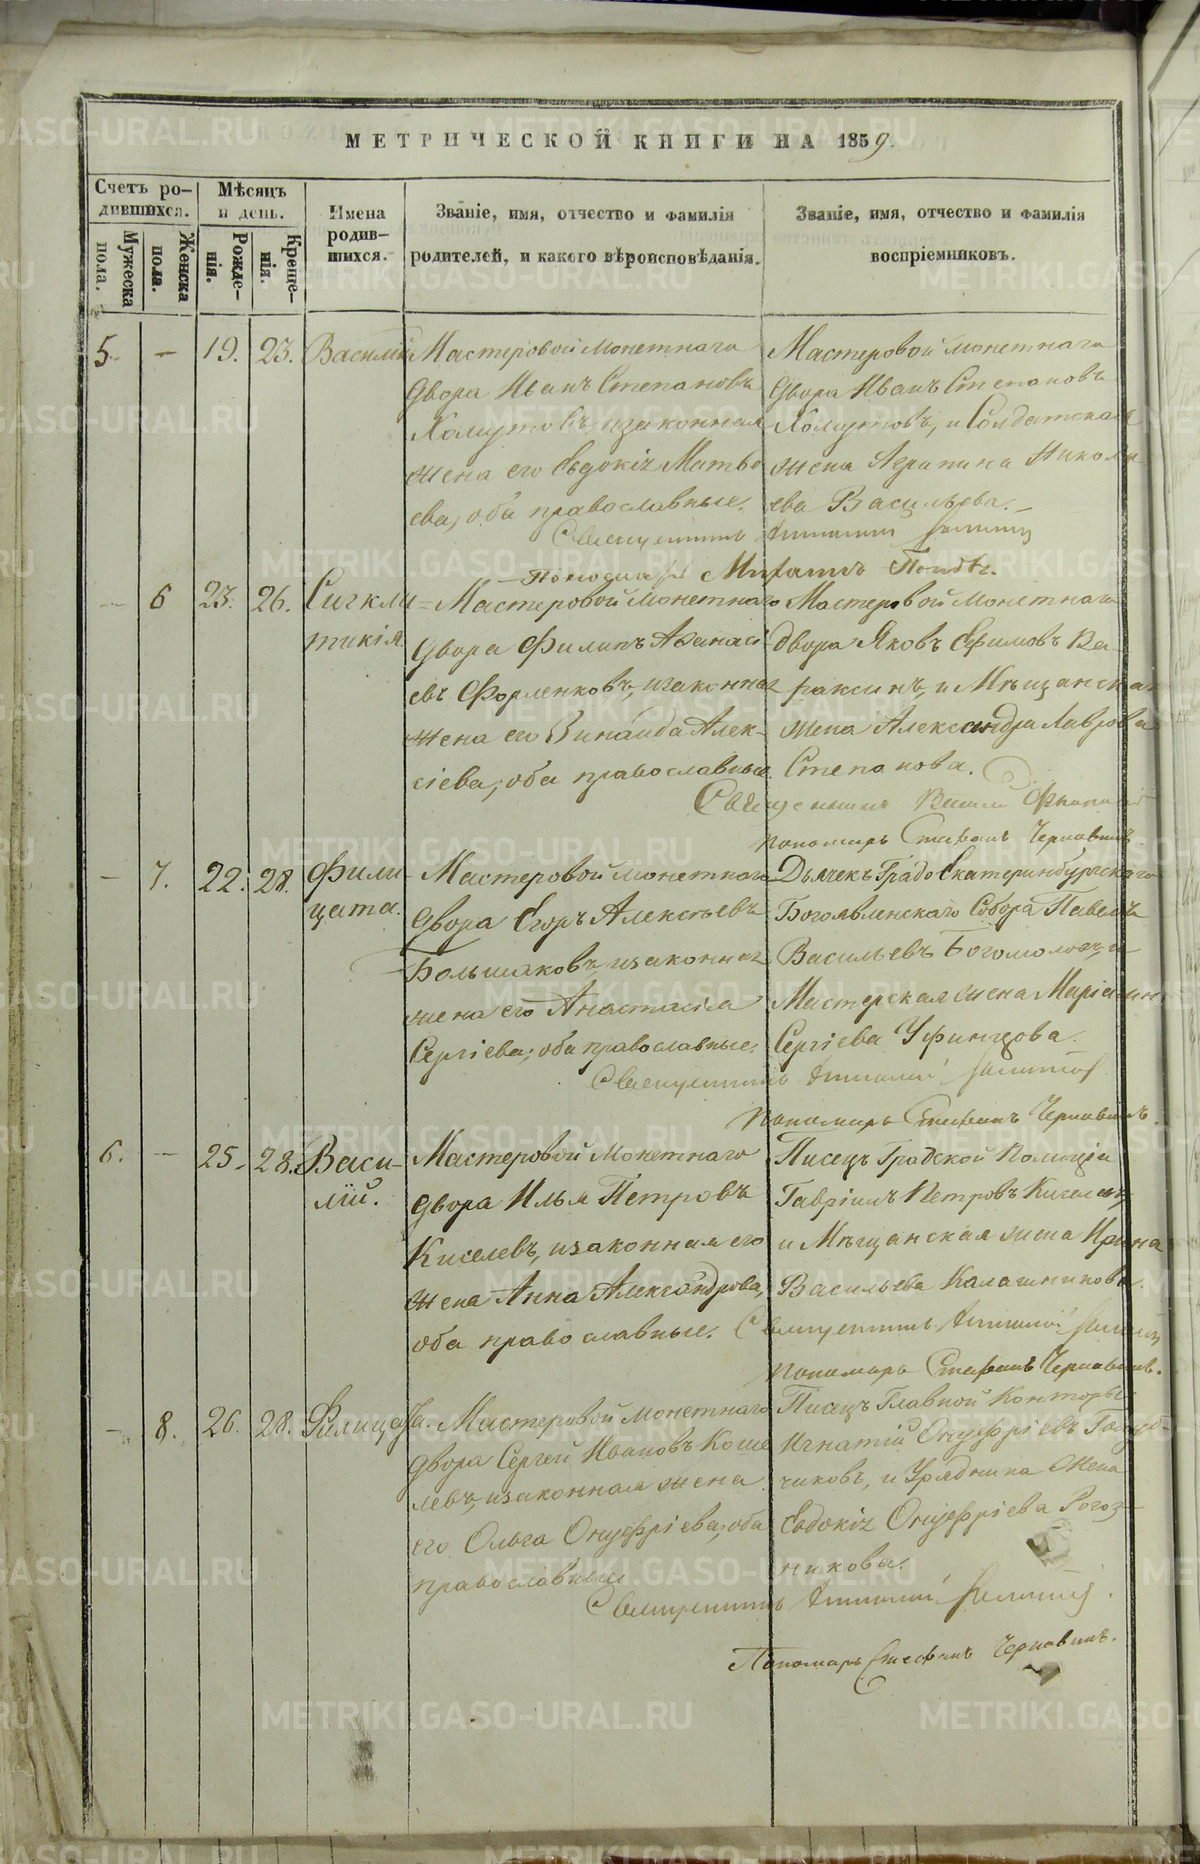 МЕТРИЧЕСКОЙ КНИГИ НА 1859.
Счетъ ро-
дившихся.
Мужеска
пола.
Женска
пола.
Мѣсяцъ
и день.
Рожде-
нія.
Креще-
нія.
Имена
родив-
шихся.
Званіе, имя, отчество и фамилія
родителей, и какого вѣроисповѣданія.
Званіе, имя, отчество и фамилія
воспріемниковъ.
5. — 19. 23. Василій
Мастеровой монетнаго
двора Иванъ Степановъ
Хомутовъ, изаконная
жена его Евдокія Матвѣ
ева, оба православные.
Мастеровой монетнаго
двора Иванъ Степановъ
Хомутовъ, и Солдатская
жена Агрипина Никола
ева Васильева.
Священникъ
Пономарь
— 6 23. 26. Сигкли-
тикія
Мастеровой монетнаго
двора Филипъ Аѳанасі
евъ Форленковъ, изаконная
жена его Зинаида Алек-
сіева, оба православные.
Мастеровой монетнаго
двора Яковъ Ефимовъ Ва
раксинъ, и Мѣщанская
жена Александра Лаврова
Степанова.
Священникъ
пономарь Стефанъ Чернавинъ
— 7. 22. 28. Фили-
цата.
Мастеровой монетнаго
двора Егоръ Алексѣевъ
Большаковъ, изаконная
жена его Анастасія
Сергіева; оба православные.
Дьячекъ Градо Екатеринбургскаго
Богоявленскаго Собора Павелъ
Васильевъ Богомоловъ, и
Мастерская жена Марія
Сергіева Уфинцова.
Священникъ
Пономарь Стефанъ Чернавинъ.
6. — 25. 28. Васи-
лій.
Мастеровой монетнаго
двора Илья Петровъ
Киселевъ, изаконная его
жена Анна Александрова,
оба православные.
Писецъ Градской Полиціи
Гавріилъ Петровъ Киселевъ,
и Мѣщанская жена Ирина
Васильева Калашникова.
Священникъ
пономарь Стефанъ Чернавинъ.
— 8. 26. 28. Филицата.
Мастеровой монетнаго
двора Сергей Ивановъ Коше
левъ, изаконная жена
его Ольга Онуфріева, оба
православные
Писецъ Главной Конторы
Игнатій Онуфріевъ
чиковъ, и Урядника жена
Евдокія Онуфріева Рогоз-
никова.
Священникъ
Пономарь Стефанъ Чернавинъ.
METRIKI.GASO-URAL.RU